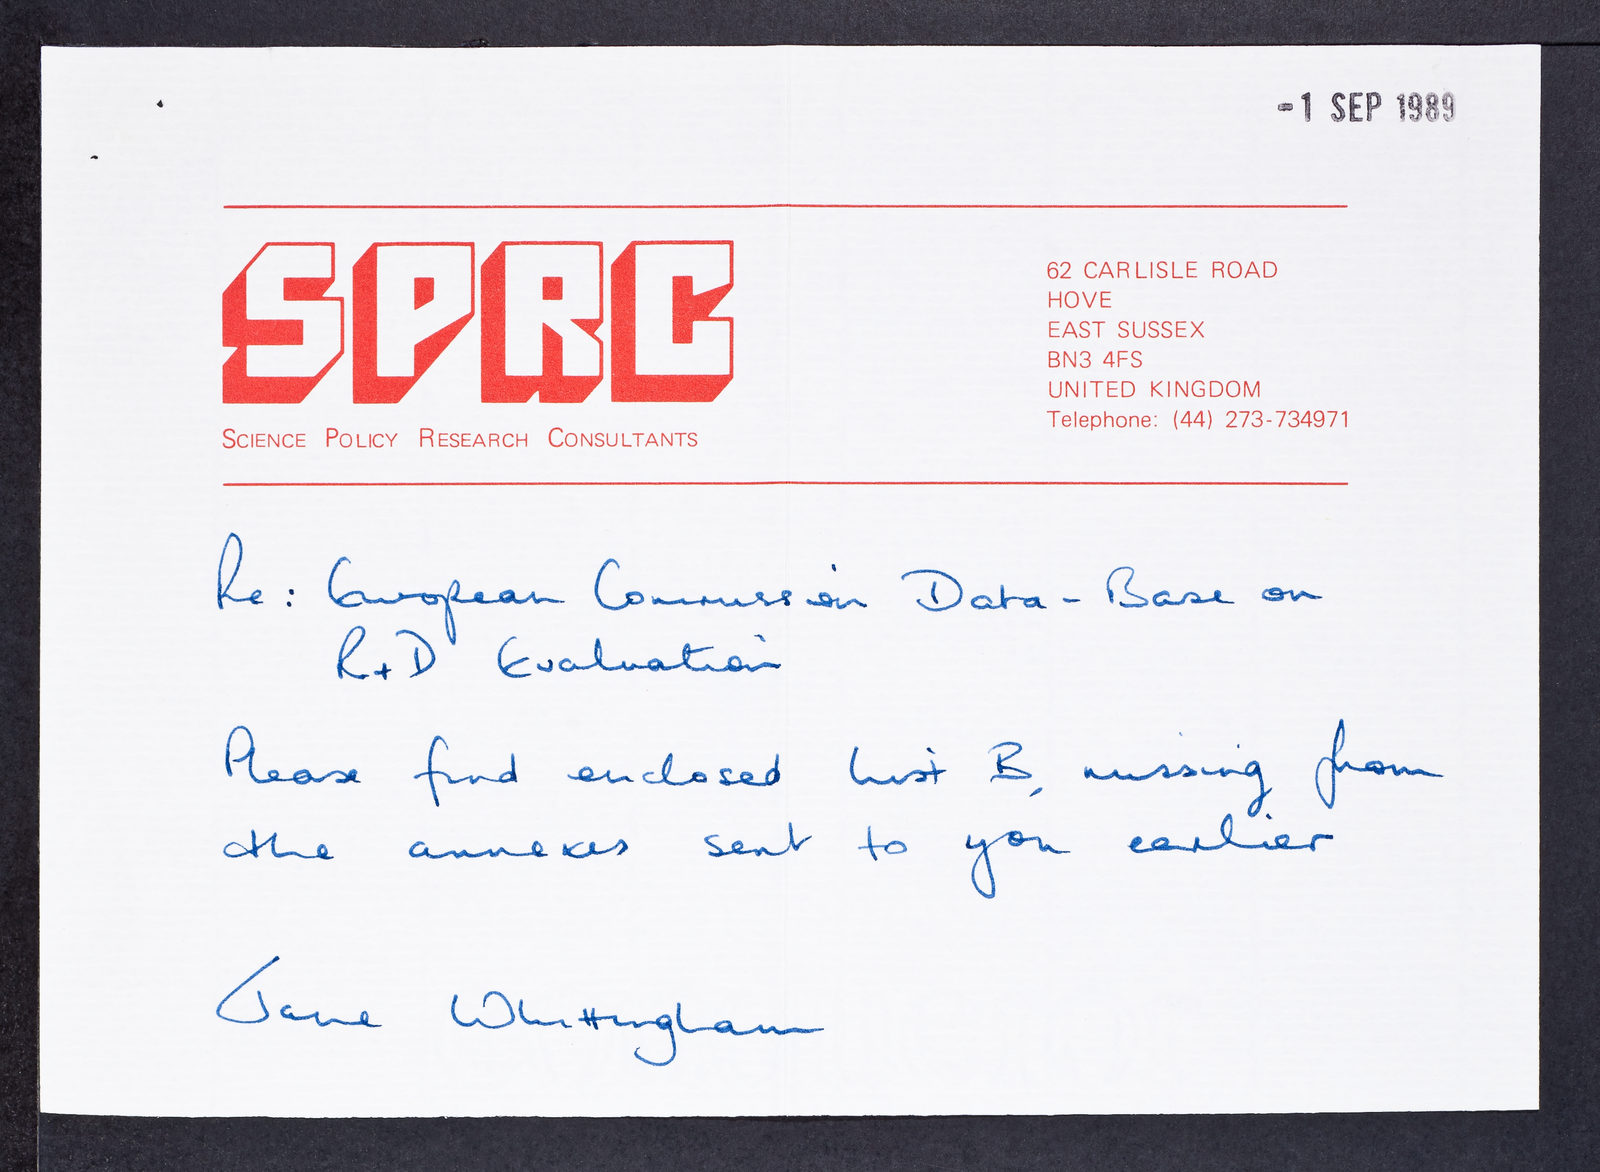 -1 SEP 1989
SPRC
SCIENCE POLICY RESEARCH CONSULTANTS
62 CARLISLE ROAD
HOVE
EAST SUSSEX
BN3 4FS
UNITED KINGDOM
Telephone: (44) 273-734971
Re: European Commission Data-Base on
R+D Evaluation
Please find enclosed List B, missing from
the annexes sent to you earlier
Jane Whittingham